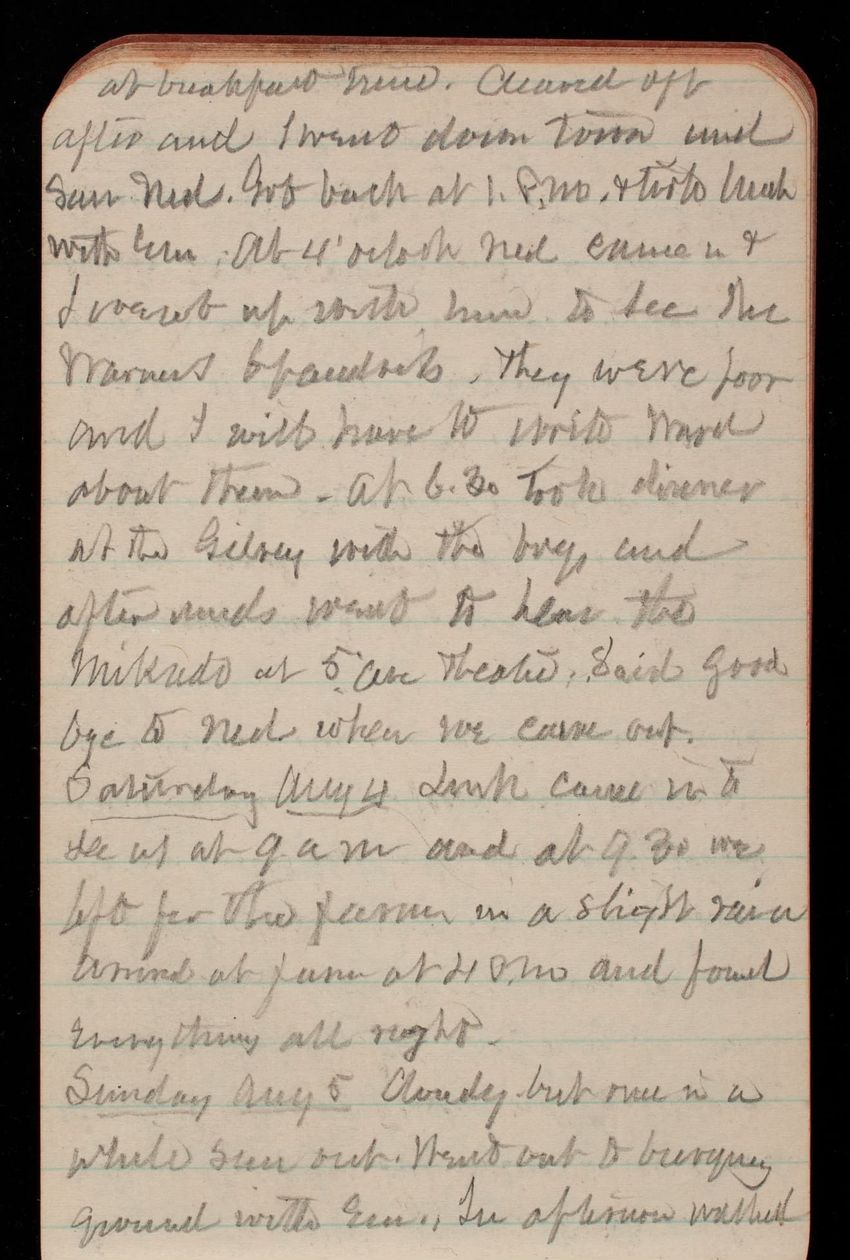 at breakfast time. Cleared off
after and I went down town and
saw Ned. Got back at 1. P.M. & took lunch
with Em. At 4 o'clock Ned came in &
I went up with him to see the
Warners Spandrels. They were poor
and I will have to write Ward
about them - At 6.30 took dinner
at the Gilsey with the boys and
afterwards went to hear the
Mikado at 5 ave Theatre. Said good
bye to Ned when we came out.
Saturday Aug 4 came in to
see us at 9 a m and at 9 30 we
left for the farm in a slight rain
arrived at farm at 4 P.M and found
Everything all right -
Sunday Aug 5 Cloudy but once in a
while sun out. Went out to burying
ground with Em. In afternoon walked